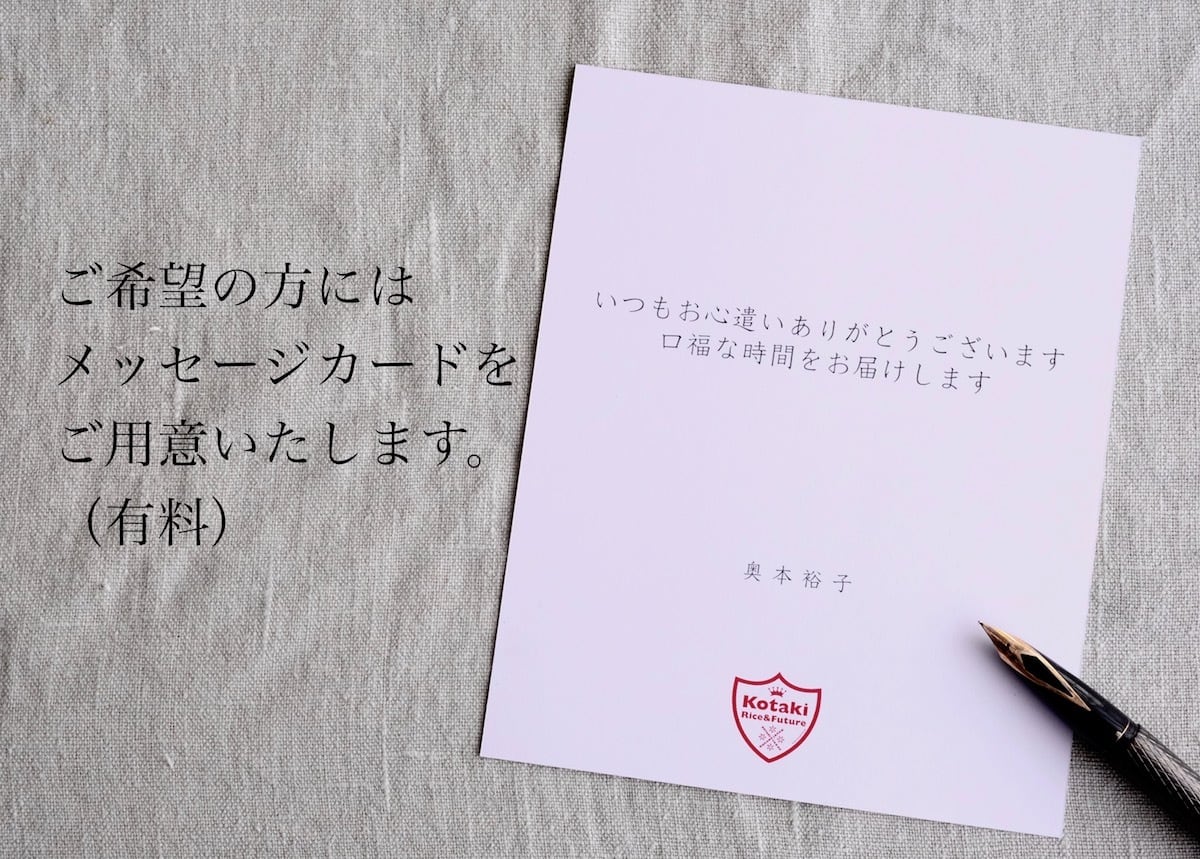 ご希望の方には
メッセージカードを
ご用意いたします。
（有料）
いつもお心遣いありがとうございます
口福な時間をお届けします
奥本裕子
Kotaki
Rice&Future